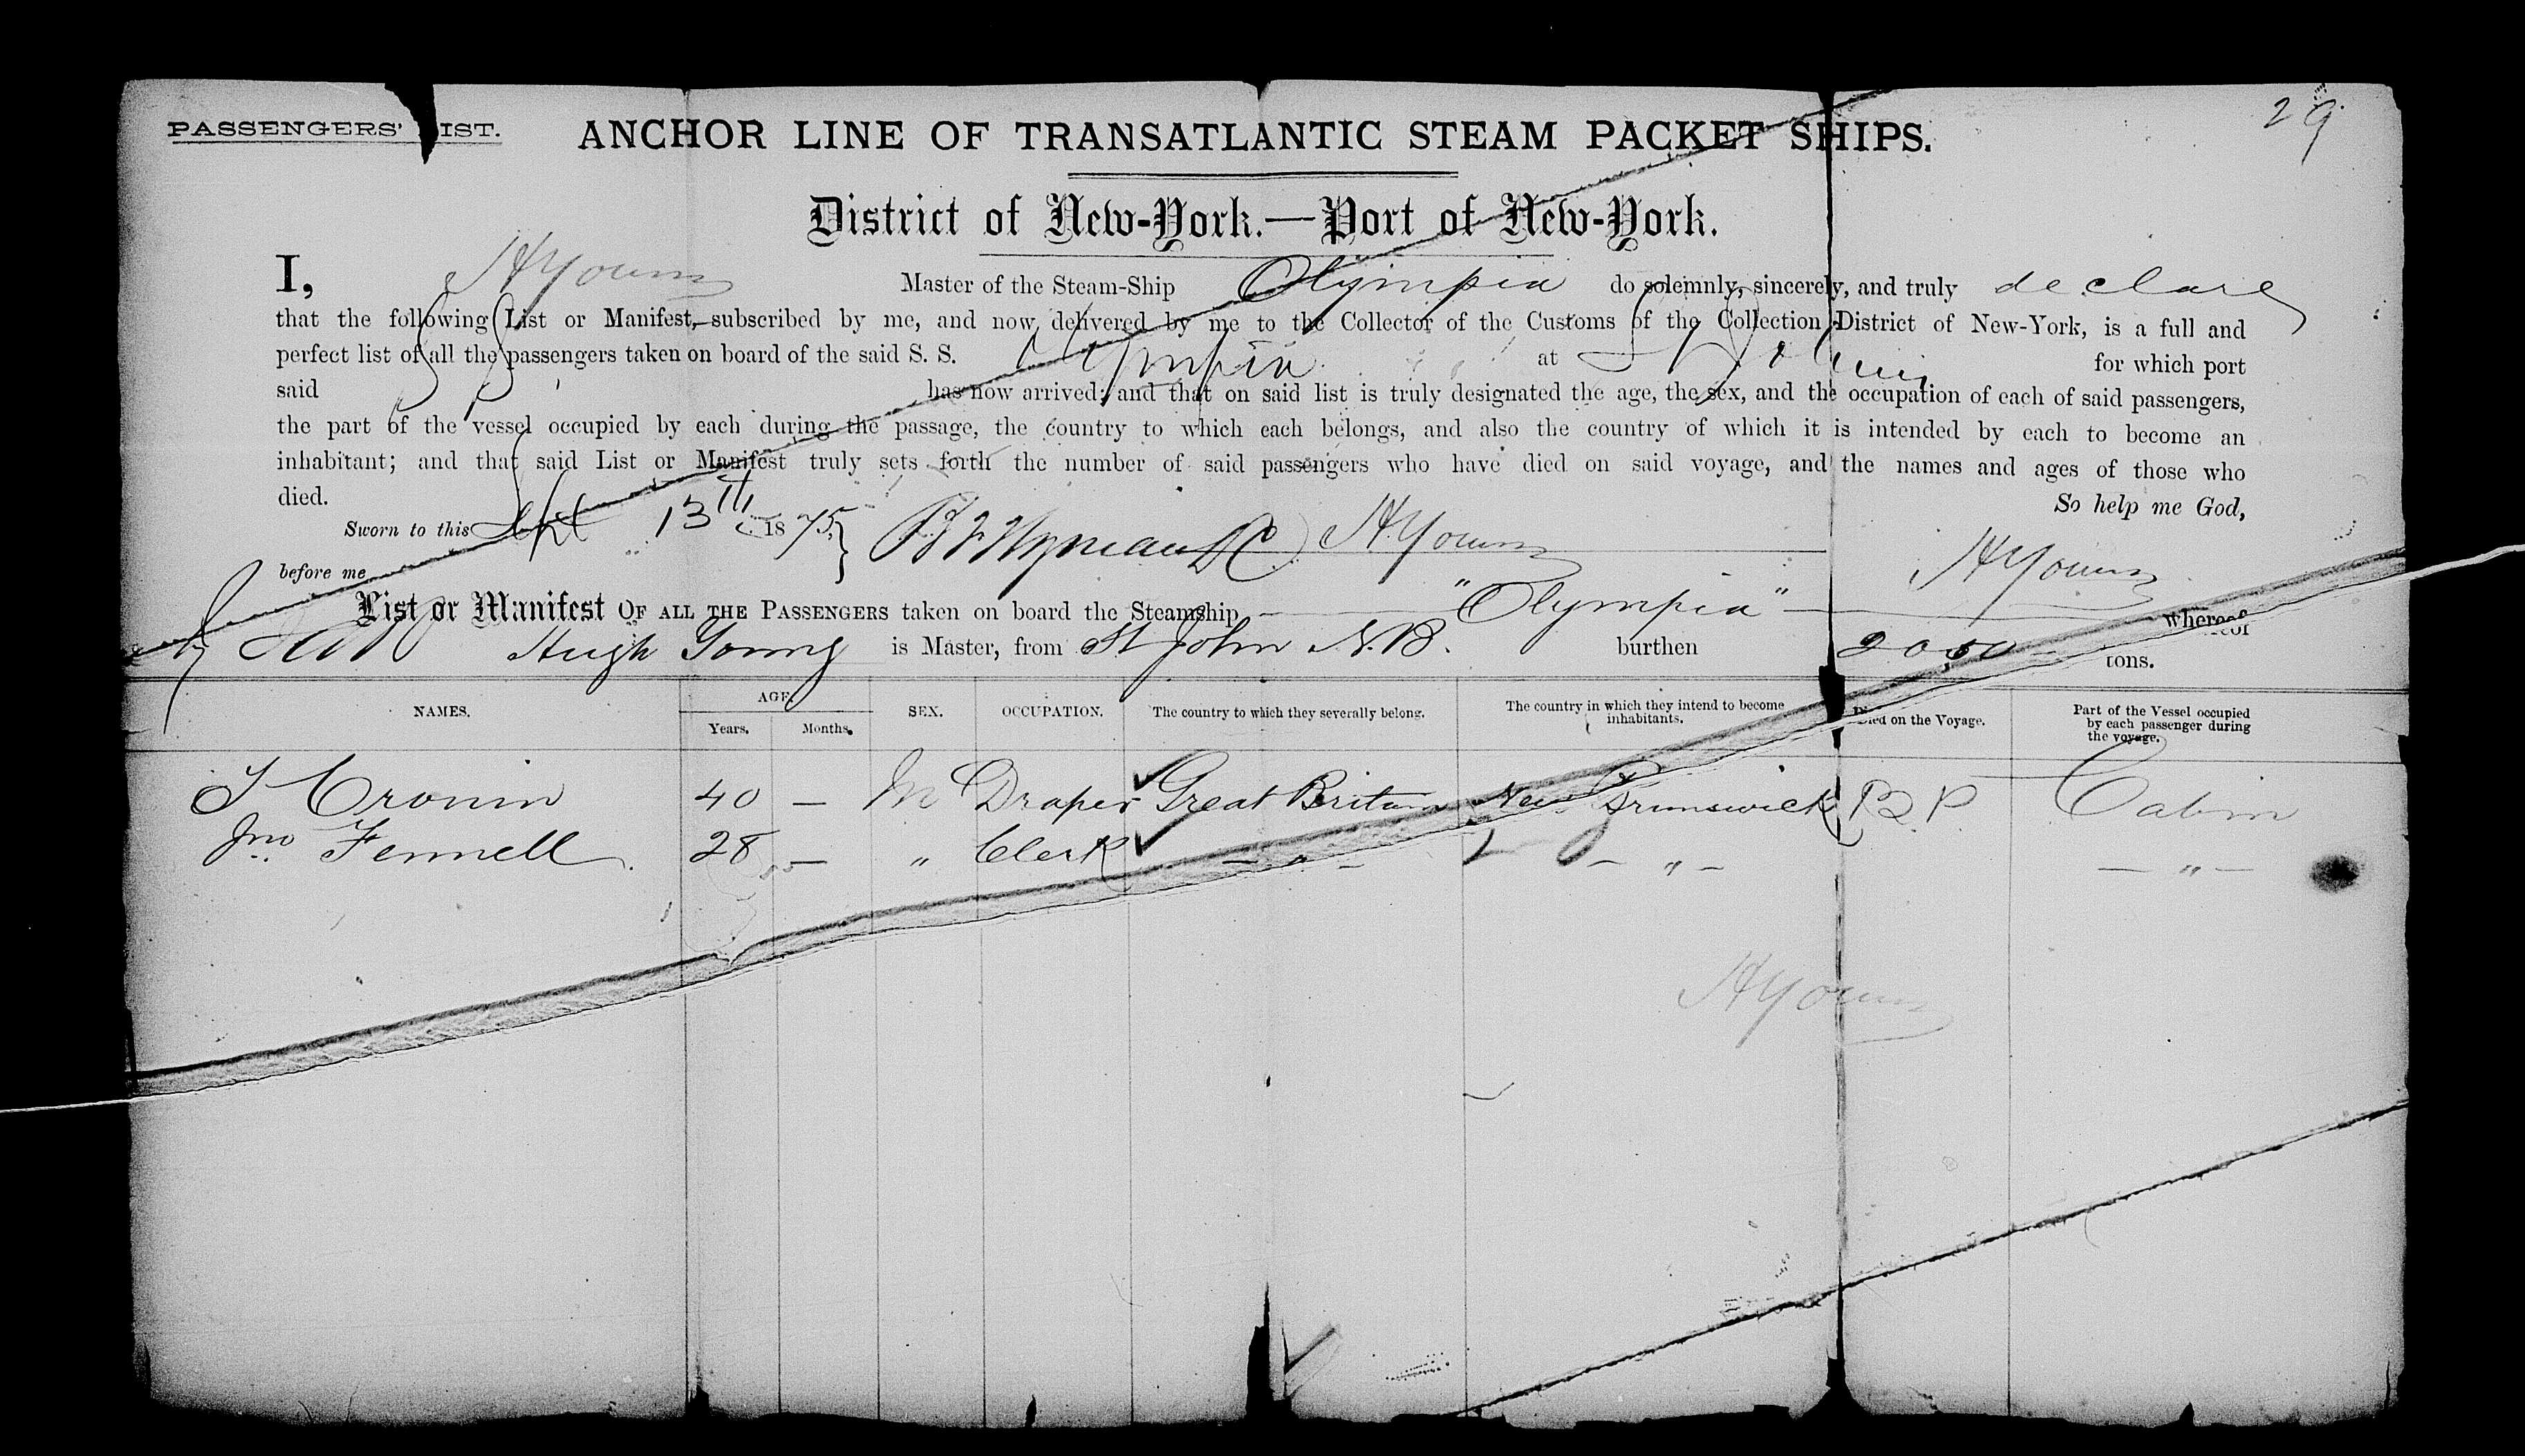 29
PASSENGERS' LIST.
ANCHOR LINE OF TRANSATLANTIC STEAM PACKET SHIPS.
District of New-York.—Port of New-York.
I, H Young Master of the Steam-Ship Olympia do solemnly, sincerely, and truly declare
that the following List or Manifest, subscribed by me, and now delivered by me to the Collector of the Customs of the Collection District of New-York, is a full and
perfect list of all the passengers taken on board of the said S. S. Olympia at St John for which port
said has now arrived; and that on said list is truly designated the age, the sex, and the occupation of each of said passengers,
the part of the vessel occupied by each during the passage, the country to which each belongs, and also the country of which it is intended by each to become an
inhabitant; and that said List or Manifest truly sets forth the number of said passengers who have died on said voyage, and the names and ages of those who
died. So help me God,
Sworn to this Sept 13th 1875 H Young
before me H Young
List or Manifest OF ALL THE PASSENGERS taken on board the Steamship "Olympia" whereof
Hugh Young is Master, from St John N.B. burthen 2050 tons.
NAMES. AGE. Years. Months. SEX. OCCUPATION. The country to which they severally belong. The country in which they intend to become inhabitants. Died on the Voyage. Part of the Vessel occupied by each passenger during the voyage.
J Cronin 40 — M Draper Great Britain New Brunswick Cabin
Jno Fennell 28 — " Clerk — " — — " — — " —
H Young